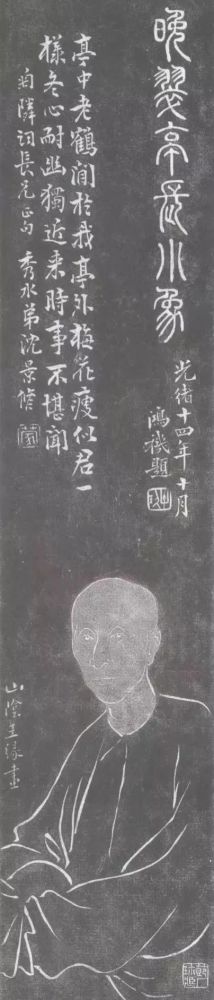 晚翠亭長小象
光緒十四年十月
鴻禨題
亭中老鶴閒於我亭外梅花瘦似君一
樣冬心耐幽獨近来時事不堪聞
詞長兄正句 秀水弟沈景修
山陰
畫